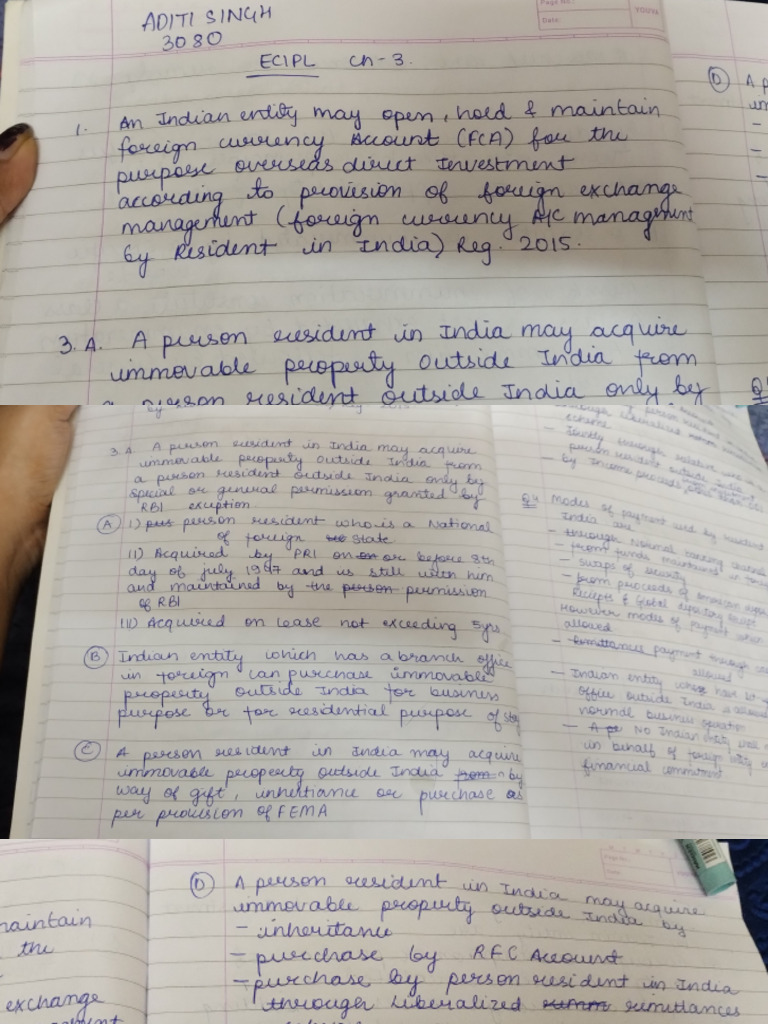 Page No.:
Date:
YOUVA
ADITI SINGH
3080
ECIPL Ch-3.
1. An Indian entity may open, hold & maintain
foreign currency Account (FCA) for the
purpose overseas direct Investment
according to provision of foreign exchange
management (foreign currency A/C management
by Resident in India) Reg. 2015.
3. A. A person resident in India may acquire
immovable property outside India from
a person resident outside India only by
D A p
3. A. A person resident in India may acquire
immovable property outside India from
a person resident outside India only by
special or general permission granted by
RBI exuption
A I) person resident who is a National
of foreign State
II) Acquired by PRI on or before 8th
day of july 1947 and is still with him
and maintained by the permission
of RBI
III) Acquired on lease not exceeding 5yrs
B Indian entity which has a branch office
in foreign can purchase immovable
property outside India for business
purpose or for residential purpose of
C A person resident in India may acquire
immovable property outside India by
way of gift, inheritance or purchase as
per provision of FEMA
scheme
- Jointly through
person resident outside India
- by Income proceeds
Q4 Modes of payment by resident
India are
- through Normal banking
- from funds maintained in
- swaps of security
- from proceeds of American
Receipts & Global depository
However modes of payment
allowed
- payment through
allowed
- Indian entity have
office outside India
normal business operation
- No Indian entity
in behalf of foreign entity
financial commitment
D A person resident in India may acquire
immovable property outside India by
- inheritance
- purchase by RFC Account
- purchase by person resident in India
through Liberalized remittances
maintain
the
exchange